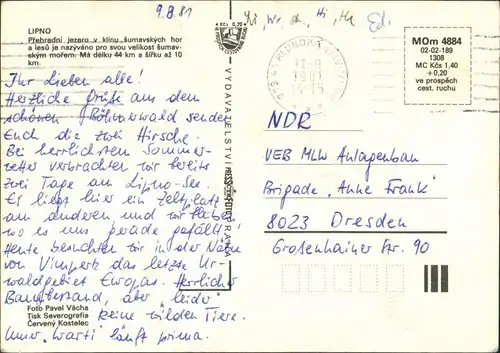 9.8.81
LIPNO
Přehradní jezero v klínu šumavských hor
a lesů je nazýváno pro svou velikost šumav-
ským mořem. Má délku 44 km a šířku až 10
km.
Ihr Lieben alle!
Herzliche Grüße aus dem
schönen Böhmerwald senden
Euch die zwei Hirsche.
Bei herrlichstem Sommer-
wetter verbrachten wir bereits
zwei Tage am Lipno-See.
Es liegt hier ein Zeltplatz
am anderen und wir bleiben
wo es uns gerade gefällt!
Heute besuchten wir in der Nähe
von Vimperk das letzte Ur-
waldgebiet Europas. Herrlicher
Baumbestand, aber "leider"
keine wilden Tiere.
Unser "Warti" läuft prima.
Foto Pavel Vácha
Tisk Severografia
Červený Kostelec
VYDAVATELSTVÍ
PRAHA
Kčs 0,20
HLUBOKÁ
11.-8.
1981
MOm 4884
02-02-189
1308
MC Kčs 1,40
+0,20
ve prospěch
cest. ruchu
NDR
VEB MLW Anlagenbau
Brigade "Anne Frank"
8023 Dresden
Großenhainer Str. 90